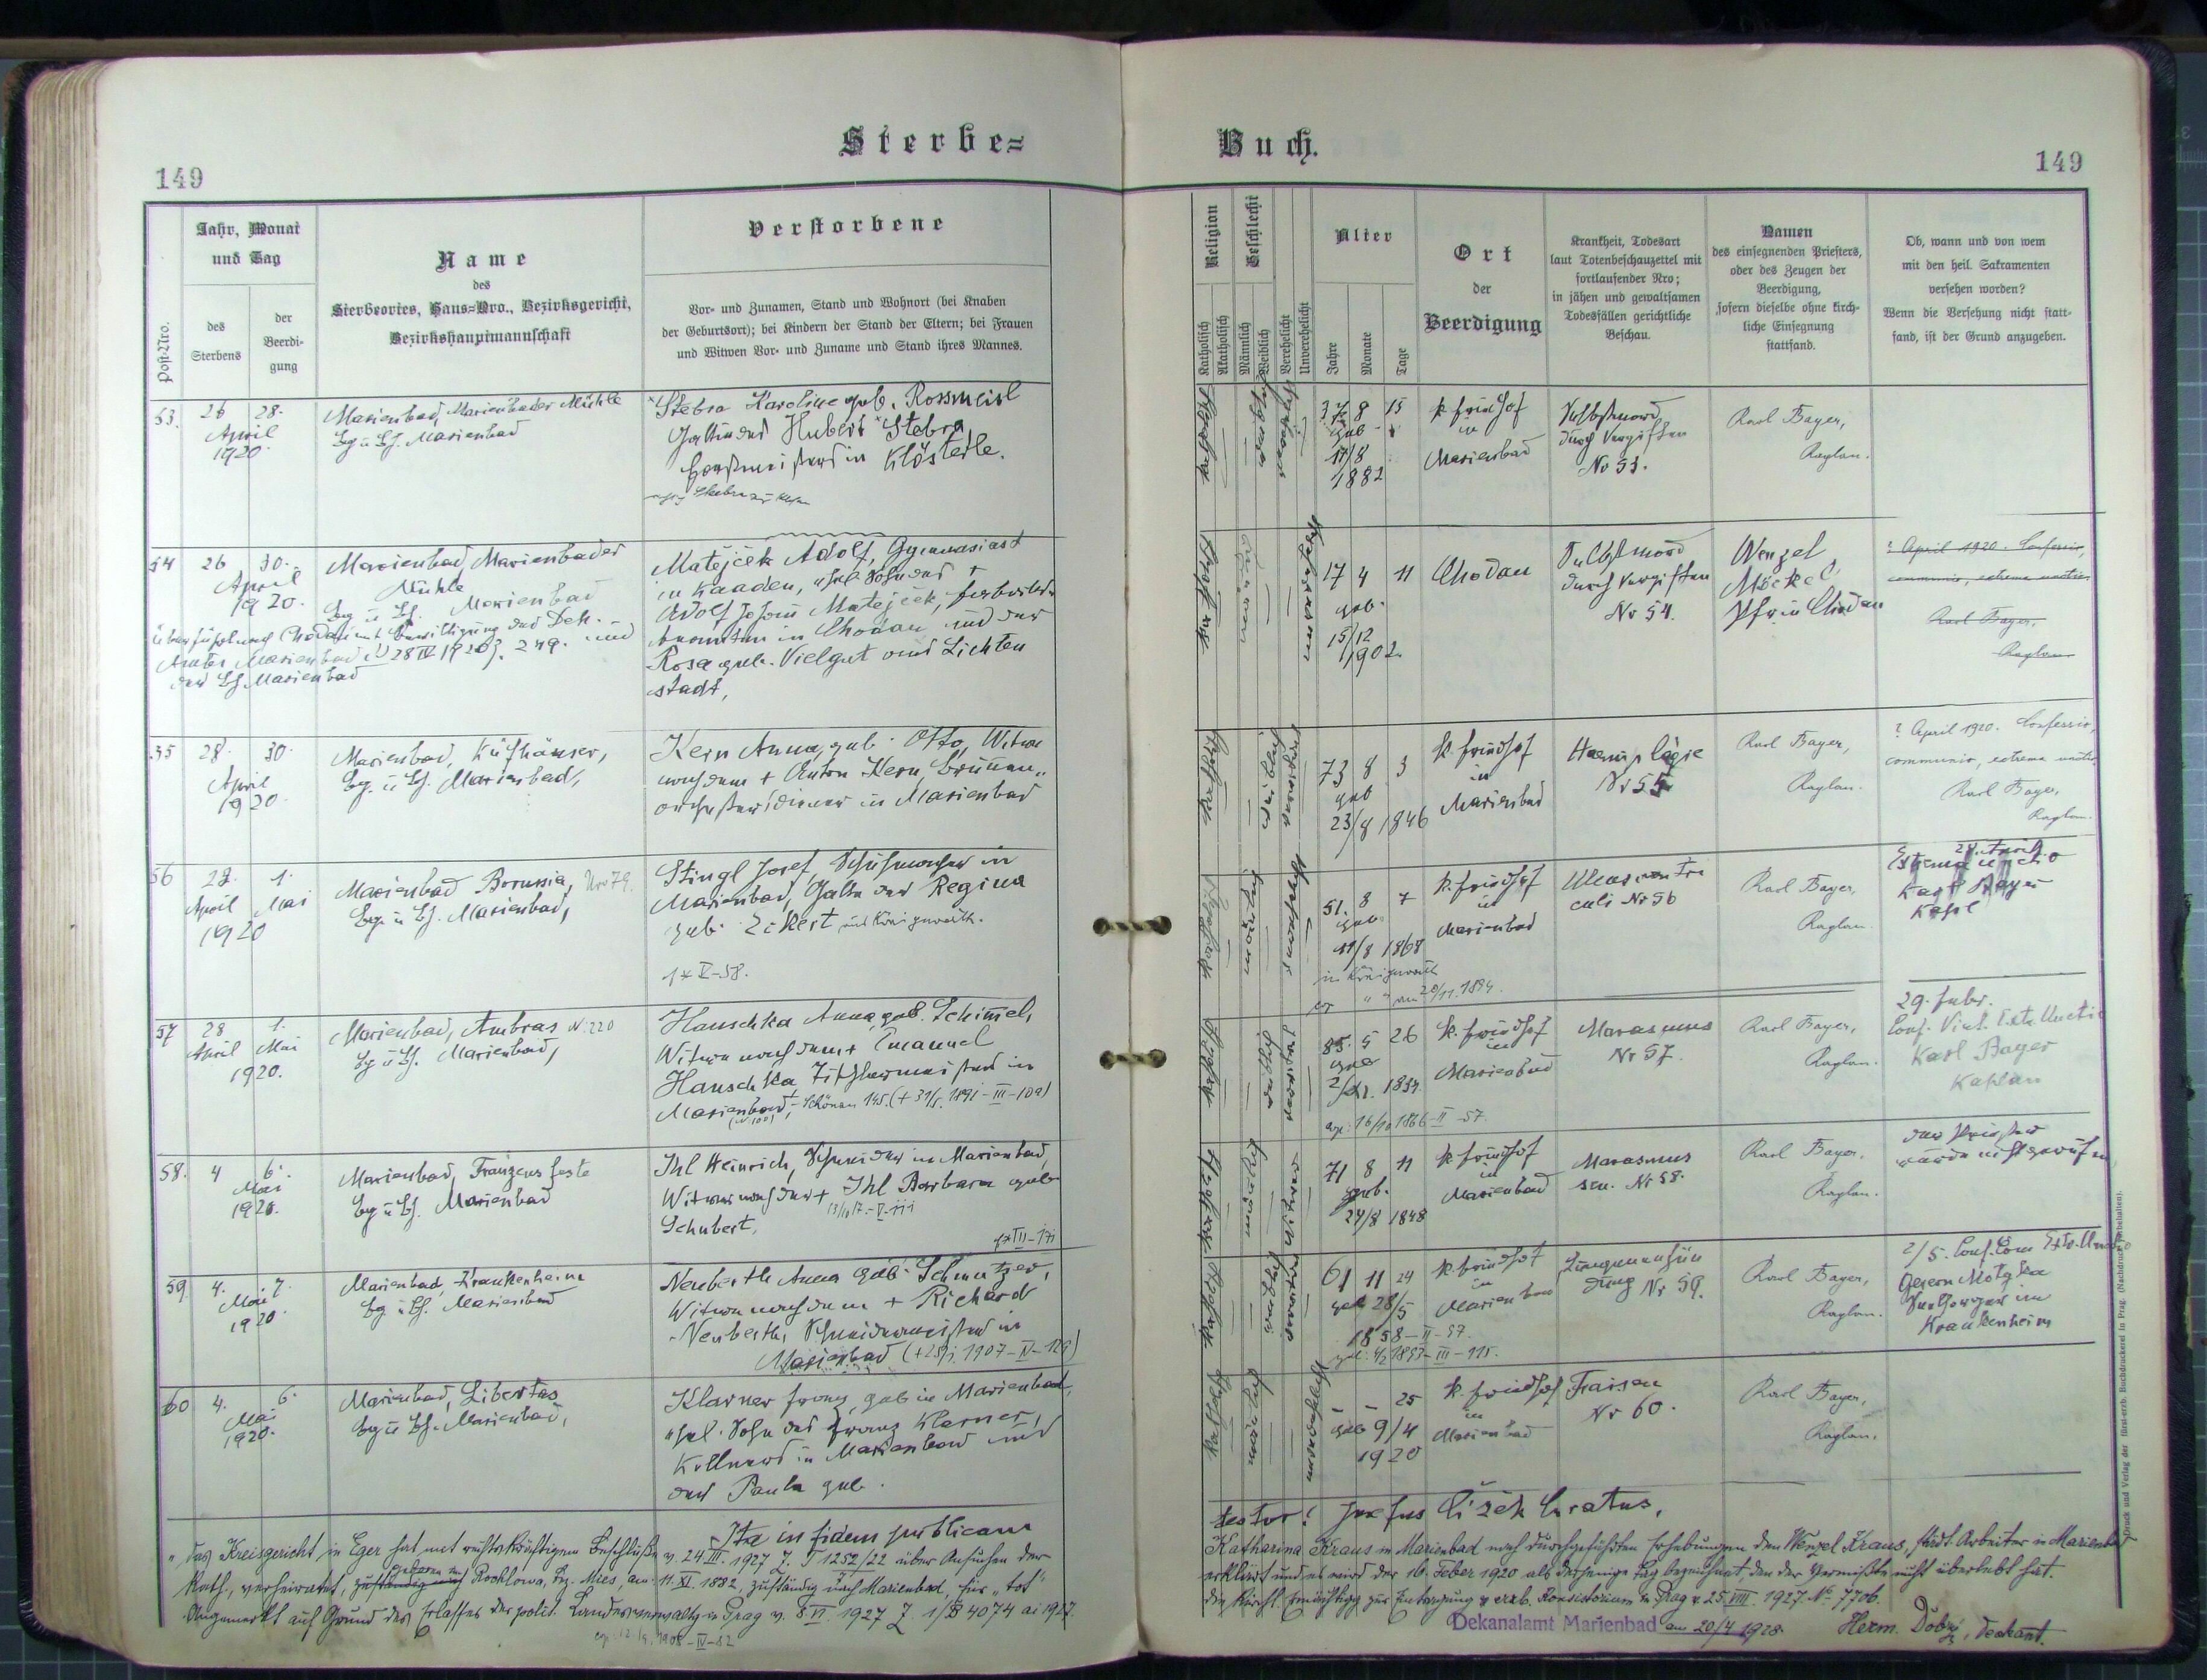 Sterbe=
Buch.
149
149
Post-Nro.
Jahr, Monat
und Tag
des
Sterbens
der
Beerdi-
gung
Name
des
Sterbeortes, Haus=Nro., Bezirksgericht,
Bezirkshauptmannschaft
Verstorbene
Vor- und Zunamen, Stand und Wohnort (bei Knaben
der Geburtsort); bei Kindern der Stand der Eltern; bei Frauen
und Witwen Vor- und Zuname und Stand ihres Mannes.
Religion
Katholisch
Akatholisch
Geschlecht
Männlich
Weiblich
Verehelicht
Unverehelicht
Alter
Jahre
Monate
Tage
Ort
der
Beerdigung
Krankheit, Todesart
laut Totenbeschauzettel mit
fortlaufender Nro;
in jähen und gewaltsamen
Todesfällen gerichtliche
Beschau.
Namen
des einsegnenden Priesters,
oder des Zeugen der
Beerdigung,
sofern dieselbe ohne kirch-
liche Einsegnung
stattfand.
Ob, wann und von wem
mit den heil. Sakramenten
versehen worden?
Wenn die Versehung nicht statt-
fand, ist der Grund anzugeben.
53. 26 28.
April
1920.
Marienbad, Marienbader Mühle
Bg u Bh. Marienbad
Stebra Karoline geb. Rossmeisl
Gattin des Hubert Stebra,
Forstmeisters in Klösterle.
katholisch
weiblich
37 8 15
geb.
11/8
1882
k. Friedhof
in
Marienbad
Selbstmord
durch Vergiften
No 53.
Karl Bayer,
Kaplan.
54 26 30.
April
1920.
Marienbad, Marienbader
Mühle
Bg u Bh. Marienbad
überführt nach Chodau mit Bewilligung des Dek.-
Amtes Marienbad v 28 IV 1920 Z. 249. und
der Bh Marienbad
Matejček Adolf, Gymnasiast
in Kaaden, ehel. Sohn des
Adolf Johann Matejček,
beamten in Chodau und der
Rosa geb. Vielgut aus Lichten
stadt,
männlich
unverehelicht
17 4 11
geb.
15/12
1902.
Chodau
Selbstmord
durch Vergiften
Nr 54.
Wenzel
Möckel,
Pfr in Chodau
? April 1920. Confessio,
communio, extrema unctio
Karl Bayer,
Kaplan
55 28. 30.
April
1920.
Marienbad, Küfhäuser,
Bg. u Bh. Marienbad,
Kern Anna, geb. Otto, Witwe
nach dem + Anton Kern, Brunnen-
orchesterdieners in Marienbad
katholisch
weiblich
verwitwet
73 8 3
geb
23/8 1846
k. Friedhof
in
Marienbad
Haemiplägie
Nr 55
Karl Bayer,
Kaplan.
? April 1920. Confessio,
communio, extrema unctio
Karl Bayer,
Kaplan.
56 28. 1.
April Mai
1920
Marienbad Borussia, Nro 79.
Bg. u Bh. Marienbad,
Stingl Josef, Schuhmacher in
Marienbad, Gatte der Regina
geb. Eckert aus Königswarth.
katholisch
männlich
verehelicht
51. 8 7
geb.
11/8 1868
in Königswart
k. Friedhof
in
Marienbad
Ulcus ventri
culi Nr 56
Karl Bayer,
Kaplan
28. April
Extrema unctio
Karl Bayer
Kapl
57 28 1.
April Mai
1920.
Marienbad, Ambras N. 220
Bg u Bh. Marienbad,
Hauschka Anna, geb. Schimmel,
Witwe nach dem + Emanuel
Hauschka Tischlermeister in
Marienbad,- Schönau 145. (+ 31/5. 1891 - III - 109)
katholisch
weiblich
verwitwet
85. 5 26
geb
1834.
cop. 16/10 1866 - II - 57.
k. Friedhof
in
Marienbad
Marasmus
Nr 57.
Karl Bayer,
Kaplan.
29. Febr.
Conf. Viat. Extr. Unctio
Karl Bayer
Kaplan
58. 4 6.
Mai
1920.
Marienbad, Franzens feste
Bg u Bh. Marienbad
Ihl Heinrich, Schneider in Marienbad,
Witwer nach der + Ihl Barbara geb
Schubert.
katholisch
männlich
Witwer
71 8 11
geb.
24/8 1848
k. Friedhof
in
Marienbad
Marasmus
sen. Nr 58.
Karl Bayer,
Kaplan.
der Priester
wurde nicht gerufen
59 4. 7.
Mai
1920
Marienbad, Krankenheim
Bg u Bh. Marienbad
Neuberth Anna geb. Schmutzer,
Witwe nach dem + Richard
Neuberth, Schneidermeister in
Marienbad (+ 25/1 1907 - IV - 129)
katholisch
weiblich
verwitwet
61 11 24
geb 28/5
1858 - II - 97.
1893 - III - 115.
k. Friedhof
in
Marienbad
Lungenentzün
dung Nr 59.
Karl Bayer,
Kaplan.
2/5. Conf. Com Extr. Unctio
Seelsorger im
Krankenheim
60 4. 6.
Mai
1920.
Marienbad, Libertas
Bg u Bh. Marienbad,
Klarner Franz, geb in Marienbad,
ehel. Sohn des Franz Klarner,
Kellners in Marienbad und
der Paula geb.
katholisch
männlich
unverehelicht
- - 25
geb 9/4
1920
k. Friedhof
in
Marienbad
Fraisen
Nr 60.
Karl Bayer,
Kaplan.
Ita in fidem publicam
testor! Josefus Čížek Curatus.
"Das Kreisgericht in Eger hat mit rechtskräftigem Beschluße v. 24 III. 1927 Z. T 1252/22 über Ansuchen der
Katharina Kraus in Marienbad nach durchgeführten Erhebungen den Wenzel Kraus, städt. Arbeiter in Marienbad
kath., verheiratet, geboren in Rochlowa, Bz. Mies, am 11. XI. 1882, zuständig nach Marienbad, für "tot"
erklärt und es wird der 16. Feber 1920 als derjenige Tag bezeichnet, den der Vermißte nicht überlebt hat.
Angemerkt auf Grund des Erlasses der polit. Landesverwaltg in Prag v. 8 VI. 1927 Z. 1/B 4074 ai 1927.
die kirchl. Ermächtigg zur Eintragung v erzb. Konsistorium in Prag v. 25. VIII. 1927. No 7706.
Dekanalamt Marienbad am 20/4 1928.
Herm. Dobry, Dechant.
Druck und Verlag der fürst-erzb. Buchdruckerei in Prag. (Nachdruck vorbehalten).